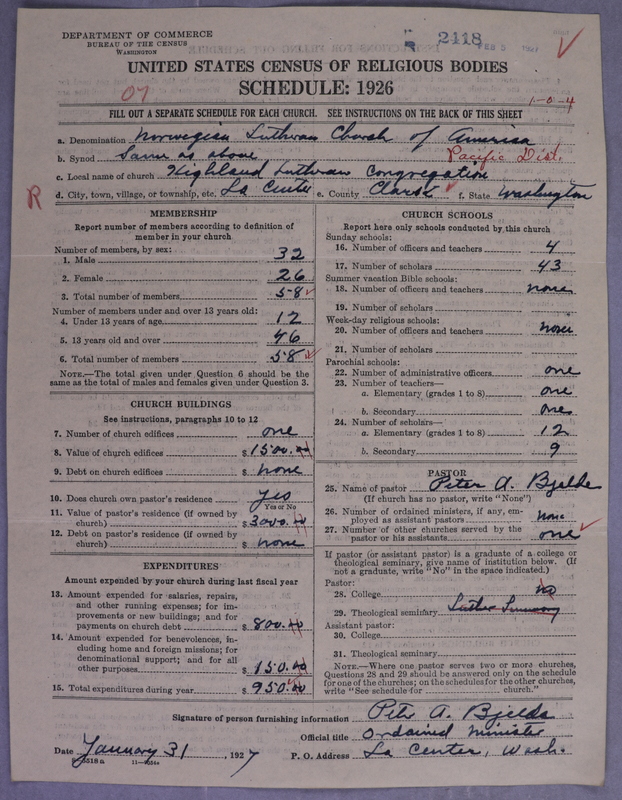 DEPARTMENT OF COMMERCE
BUREAU OF THE CENSUS
WASHINGTON
2418
FEB 5
UNITED STATES CENSUS OF RELIGIOUS BODIES
SCHEDULE: 1926
07
1-0-4
FILL OUT A SEPARATE SCHEDULE FOR EACH CHURCH. SEE INSTRUCTIONS ON THE BACK OF THIS SHEET
a. Denomination Norwegian Lutheran Church of America
b. Synod Same as above Pacific Dist.
c. Local name of church Highland Lutheran Congregation
R
d. City, town, village, or township, etc. La Center e. County Clark f. State Washington
MEMBERSHIP
Report number of members according to definition of
member in your church
Number of members, by sex:
1. Male 32
2. Female 26
3. Total number of members 58
Number of members under and over 13 years old:
4. Under 13 years of age 12
5. 13 years old and over 46
6. Total number of members 58
NOTE.—The total given under Question 6 should be the
same as the total of males and females given under Question 3.
CHURCH BUILDINGS
See instructions, paragraphs 10 to 12
7. Number of church edifices one
8. Value of church edifices $1500.00
9. Debt on church edifices $ none
10. Does church own pastor's residence yes
Yes or No
11. Value of pastor's residence (if owned by
church) $3000.00
12. Debt on pastor's residence (if owned by
church) $ none
EXPENDITURES
Amount expended by your church during last fiscal year
13. Amount expended for salaries, repairs,
and other running expenses; for im-
provements or new buildings; and for
payments on church debt $800.00
14. Amount expended for benevolences, in-
cluding home and foreign missions; for
denominational support; and for all
other purposes $150.00
15. Total expenditures during year $950.00
CHURCH SCHOOLS
Report here only schools conducted by this church
Sunday schools:
16. Number of officers and teachers 4
17. Number of scholars 43
Summer vacation Bible schools:
18. Number of officers and teachers none
19. Number of scholars
Week-day religious schools:
20. Number of officers and teachers none
21. Number of scholars
Parochial schools:
22. Number of administrative officers one
23. Number of teachers—
a. Elementary (grades 1 to 8) one
b. Secondary one
24. Number of scholars—
a. Elementary (grades 1 to 8) 12
b. Secondary 9
PASTOR
25. Name of pastor Peter A. Bjelde
(If church has no pastor, write "None")
26. Number of ordained ministers, if any, em-
ployed as assistant pastors none
27. Number of other churches served by the
pastor or his assistants one
If pastor (or assistant pastor) is a graduate of a college or
theological seminary, give name of institution below. (If
not a graduate, write "No" in the space indicated.)
Pastor:
28. College no
29. Theological seminary Luther Seminary
Assistant pastor:
30. College
31. Theological seminary
NOTE.—Where one pastor serves two or more churches,
Questions 28 and 29 should be answered only on the schedule
for one of the churches; on the schedules for the other churches,
write "See schedule for church."
Signature of person furnishing information Peter A. Bjelde
Official title Ordained Minister
Date January 31, 1927 P. O. Address La Center, Wash.